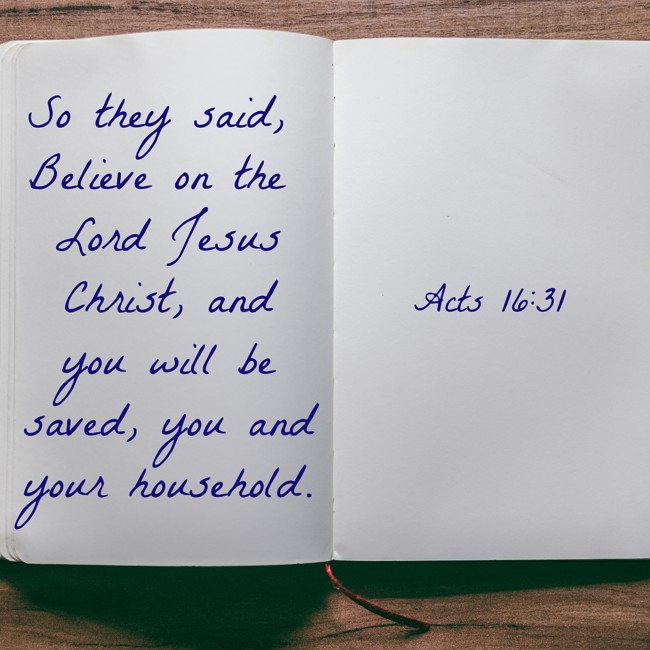 So they said,
Believe on the
Lord Jesus
Christ, and
you will be
saved, you and
your household.
Acts 16:31